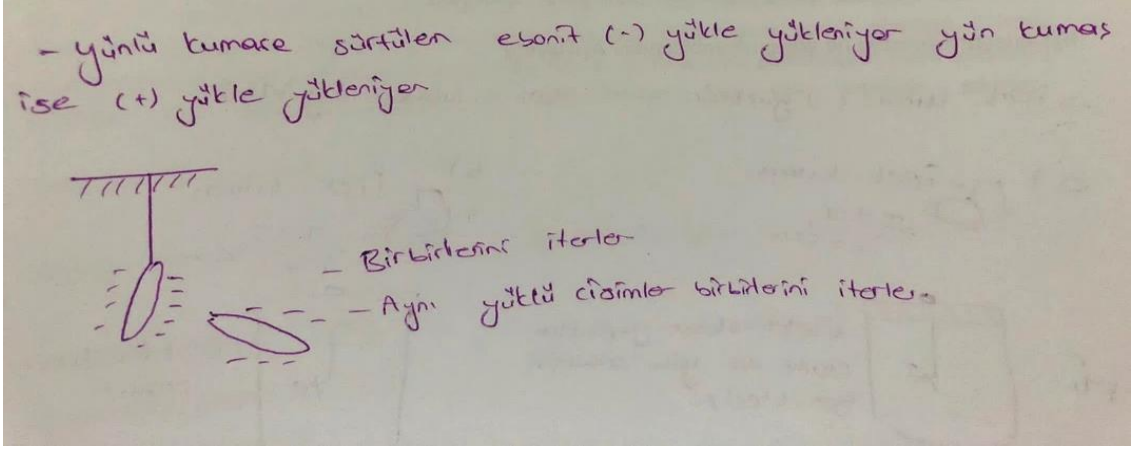 - yünlü kumaşa sürtülen ebonit (-) yükle yükleniyor yün kumaş
ise (+) yükle yükleniyor
- Birbirlerini iterler
- Aynı yüklü cisimler birbirlerini iterler.